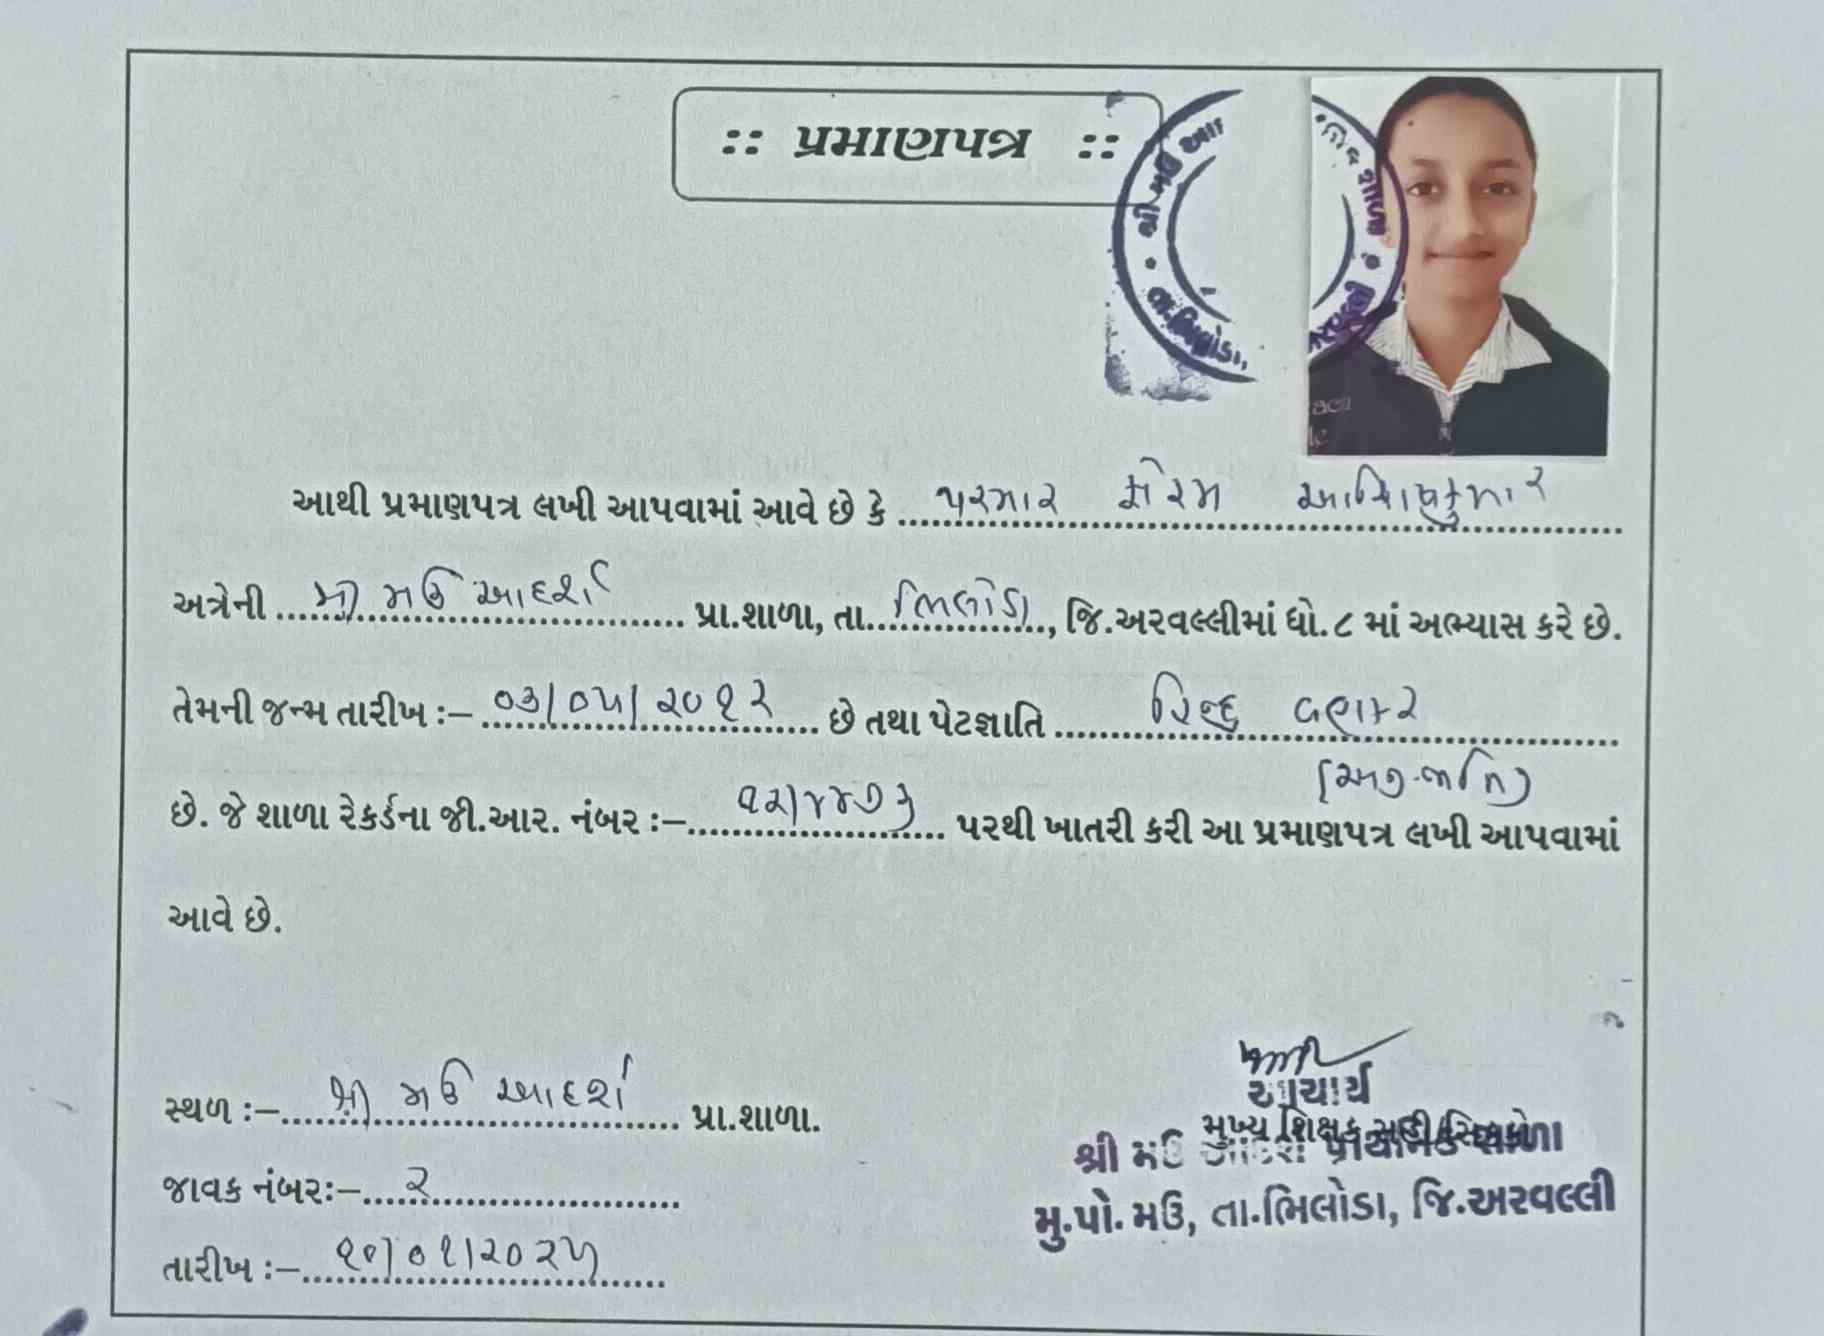 :: પ્રમાણપત્ર ::
શ્રી મઉ આ
તા.ભિલોડા,
શાળા
આથી પ્રમાણપત્ર લખી આપવામાં આવે છે કે પરમાર
અત્રેની શ્રી મઉ આદર્શ પ્રા.શાળા, તા. ભિલોડા, જિ.અરવલ્લીમાં ધો.૮ માં અભ્યાસ કરે છે.
તેમની જન્મ તારીખ :– ૦૩/૦૫/૨૦૧૨ છે તથા પેટજ્ઞાતિ હિન્દુ વણકર
(અનુ.જાતિ)
છે. જે શાળા રેકર્ડના જી.આર. નંબર :– પરથી ખાતરી કરી આ પ્રમાણપત્ર લખી આપવામાં
આવે છે.
સ્થળ :– શ્રી મઉ આદર્શ પ્રા.શાળા.
જાવક નંબરઃ– ૨
તારીખ :– ૧૦/૦૧/૨૦૨૫
આચાર્ય
મુખ્ય શિક્ષક સહી/સિક્કો
શ્રી મઉ આદર્શ પ્રાથમિક શાળા
મુ.પો. મઉ, તા.ભિલોડા, જિ.અરવલ્લી